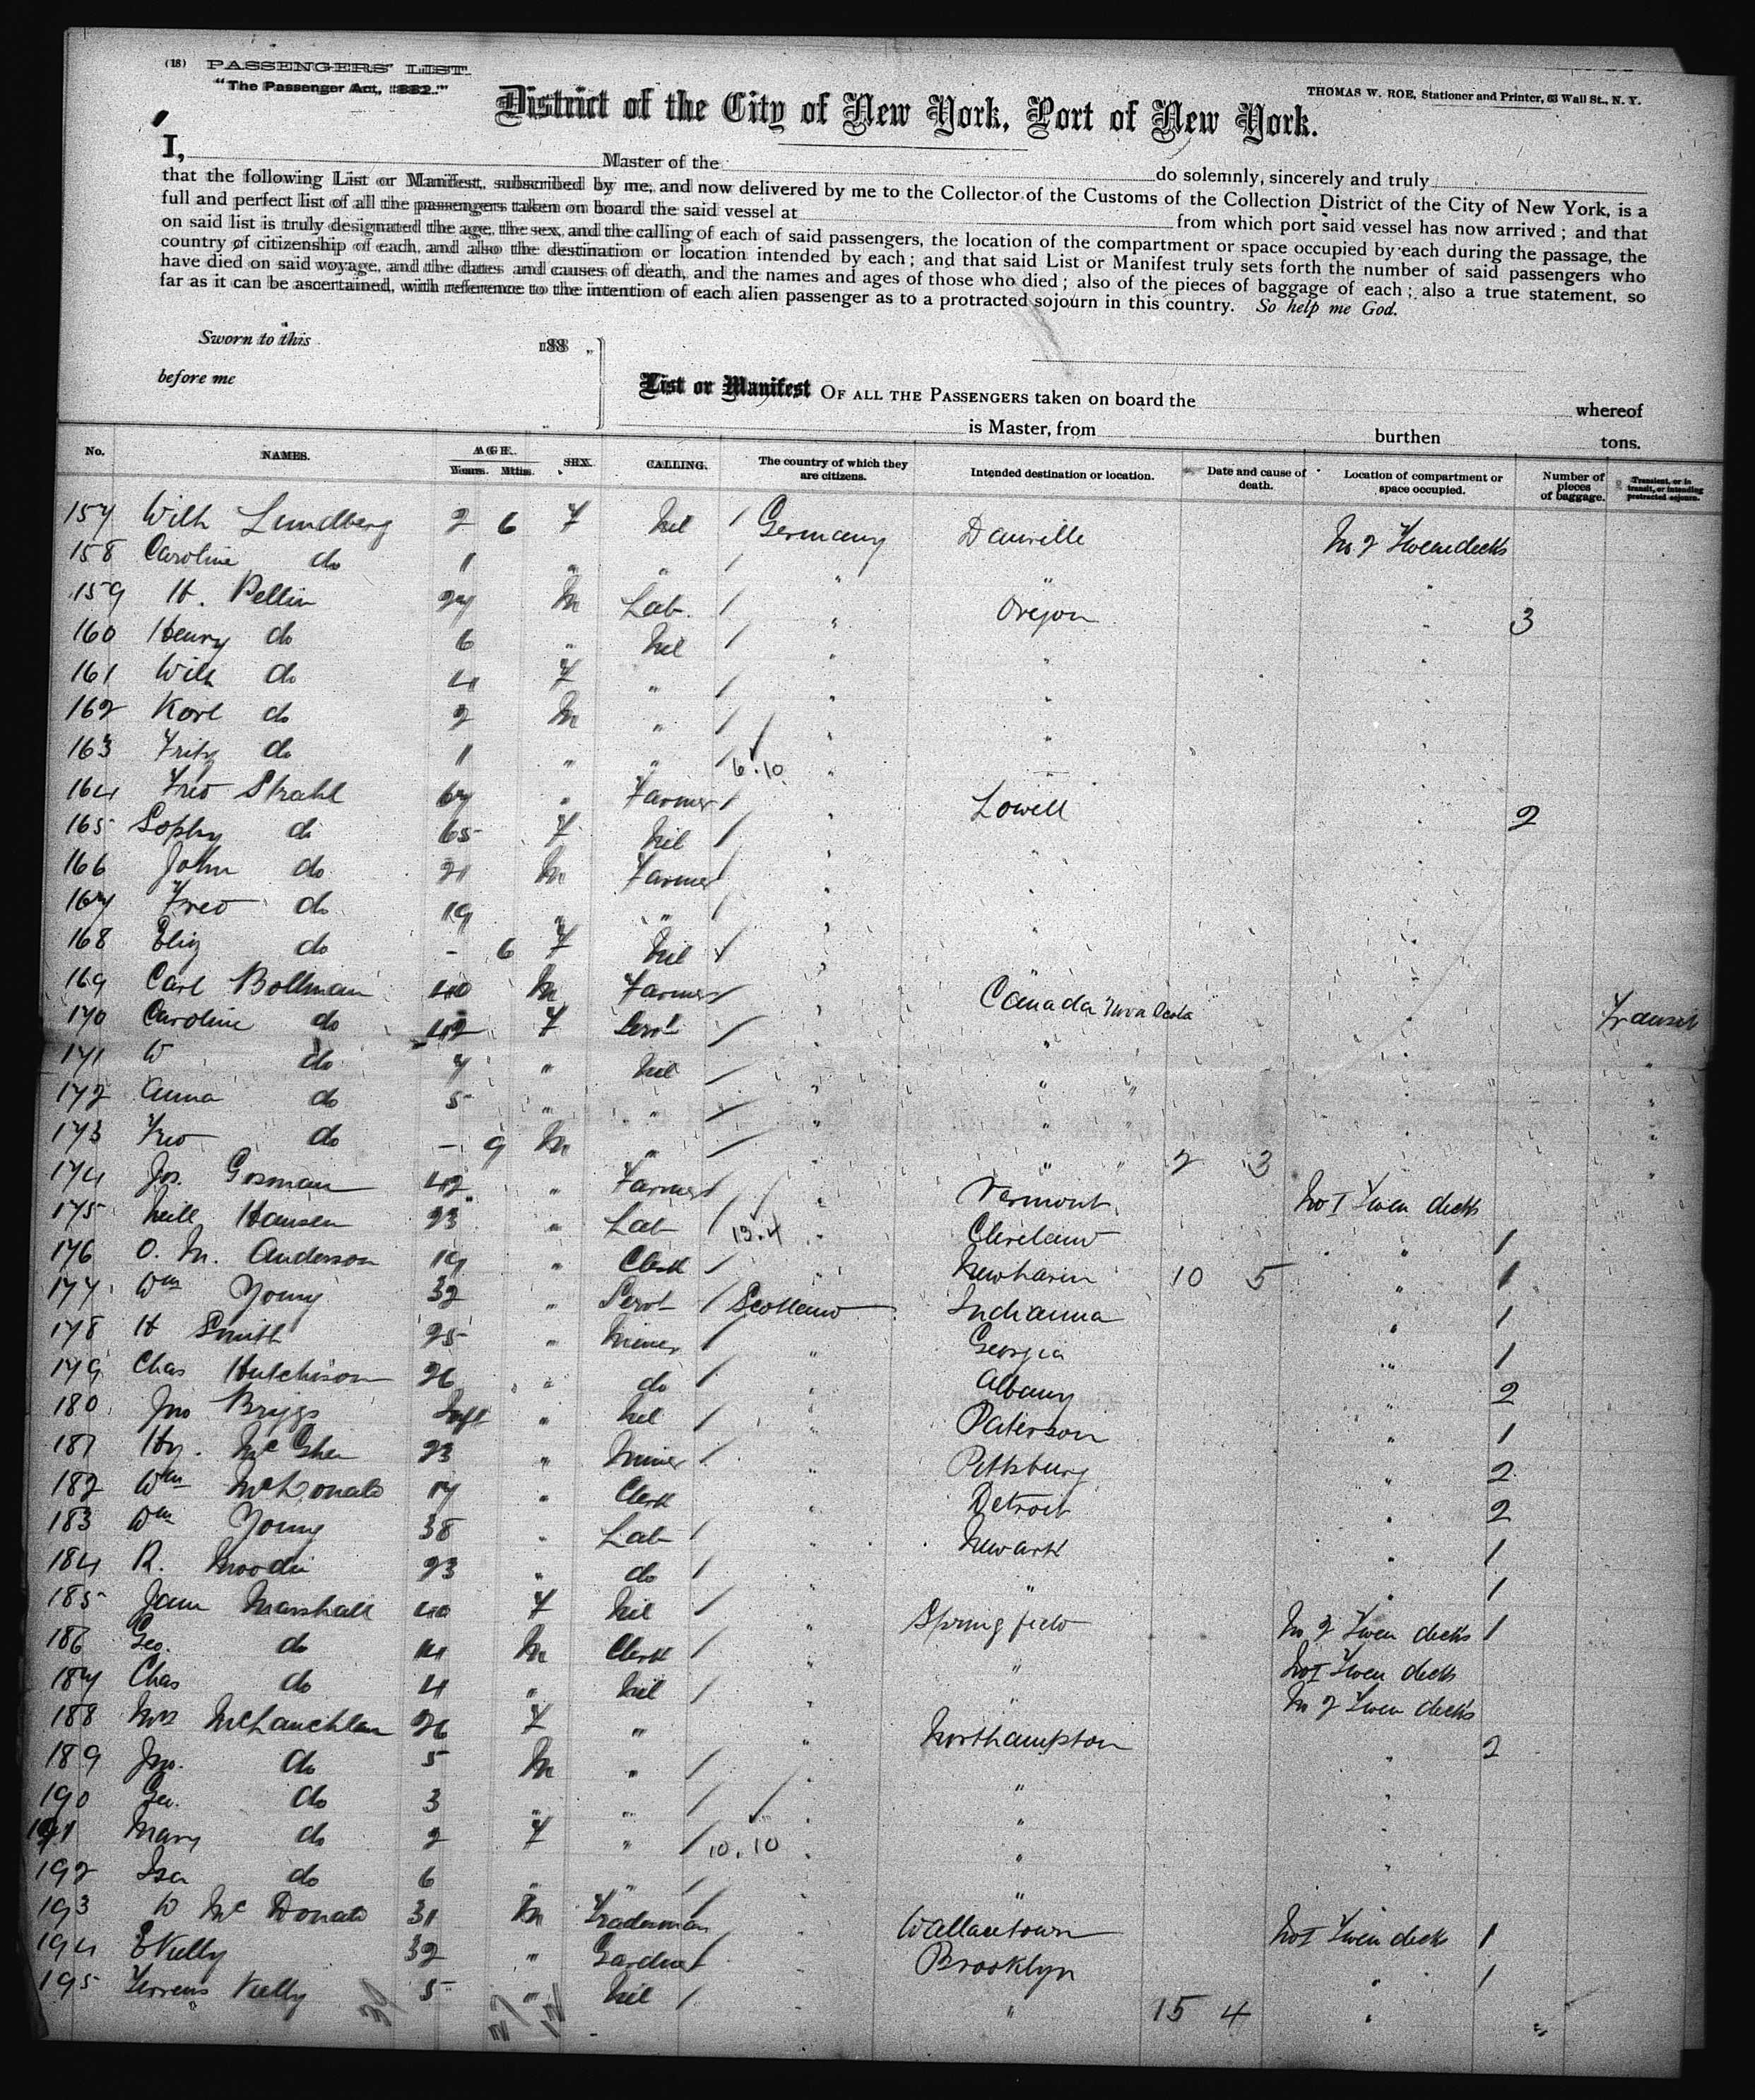 (18) PASSENGERS' LIST.
"The Passenger Act, 1882."
THOMAS W. ROE, Stationer and Printer, 63 Wall St., N. Y.
District of the City of New York, Port of New York.
I, Master of the do solemnly, sincerely and truly
that the following List or Manifest, subscribed by me, and now delivered by me to the Collector of the Customs of the Collection District of the City of New York, is a
full and perfect list of all the passengers taken on board the said vessel at from which port said vessel has now arrived; and that
on said list is truly designated the age, the sex, and the calling of each of said passengers, the location of the compartment or space occupied by each during the passage, the
country of citizenship of each, and also the destination or location intended by each; and that said List or Manifest truly sets forth the number of said passengers who
have died on said voyage, and the dates and causes of death, and the names and ages of those who died; also of the pieces of baggage of each; also a true statement, so
far as it can be ascertained, with reference to the intention of each alien passenger as to a protracted sojourn in this country. So help me God.
Sworn to this 188
before me
List or Manifest OF ALL THE PASSENGERS taken on board the whereof
is Master, from burthen tons.
No. NAMES. AGE. Years. Mths. SEX. CALLING. The country of which they are citizens. Intended destination or location. Date and cause of death. Location of compartment or space occupied. Number of pieces of baggage. Transient, or in transit, or intending protracted sojourn.
157 Wilh Lundberg 2 6 F Nil / Germany Danville No 2 Tweendecks
158 Caroline do 1 " " / " " "
159 H. Pellin 27 M Lab. / " Oregon " 3
160 Henry do 6 " Nil / " " "
161 Wilh do 4 F " / " "
162 Karl do 2 M " / " "
163 Fritz do 1 " " 6.10 " "
164 Fred Strahl 67 " Farmer / " Lowell " 2
165 Sophy do 65 F Nil / " " "
166 John do 21 M Farmer / " " "
167 Fred do 19 " " / " " "
168 Eliz do - 6 F Nil / " " "
169 Carl Bollman 40 M Farmer / " Canada Nova Scotia " Transit
170 Caroline do 42 F Servt / " " " "
171 W do 7 " Nil / " " " "
172 Anna do 5 " " / " " " "
173 Fred do - 9 M " / " " " 2 3 "
174 Jos. Gosman 42 " Farmer / " Vermont No 1 Tween decks
175 Neill Hansen 23 " Lab / 13.4 " Cleveland " 1
176 O. M. Anderson 19 " Clerk / " Newhaven 10 5 " 1
177 Wm Young 32 " Servt / Scotland Indianna " 1
178 H Smith 25 " Miner / " Georgia " 1
179 Chas Hutchison 26 " do / " Albany " 2
180 Jno Briggs Inft " Nil / " Paterson " 1
181 Hy. McGhee 23 " Miner / " Pittsburg " 2
182 Wm McDonald 17 " Clerk " Detroit " 2
183 Wm Young 38 " Lab / " Newark " 1
184 R. Moodie 23 " do / " " " 1
185 Jane Marshall 40 F Nil / " Springfield No 2 Tween decks 1
186 Geo. do 14 M Clerk / " " No 1 Tween decks
187 Chas do 4 " Nil / " " No 2 Tween decks
188 Mrs McLauchlan 26 F " " Northampton " 2
189 Jno. do 5 M " / " "
190 Geo. do 3 " " / " " "
191 Mary do 2 F " / 10.10 " " "
192 Isa do 6 " " / "
193 W McDonald 31 M Tradesman / " Wallacetown No 1 Tween decks 1
194 E Kelly 32 " Gardner / " Brooklyn " 1
195 Terrens Kelly 5 " Nil / " " 15 4 " "